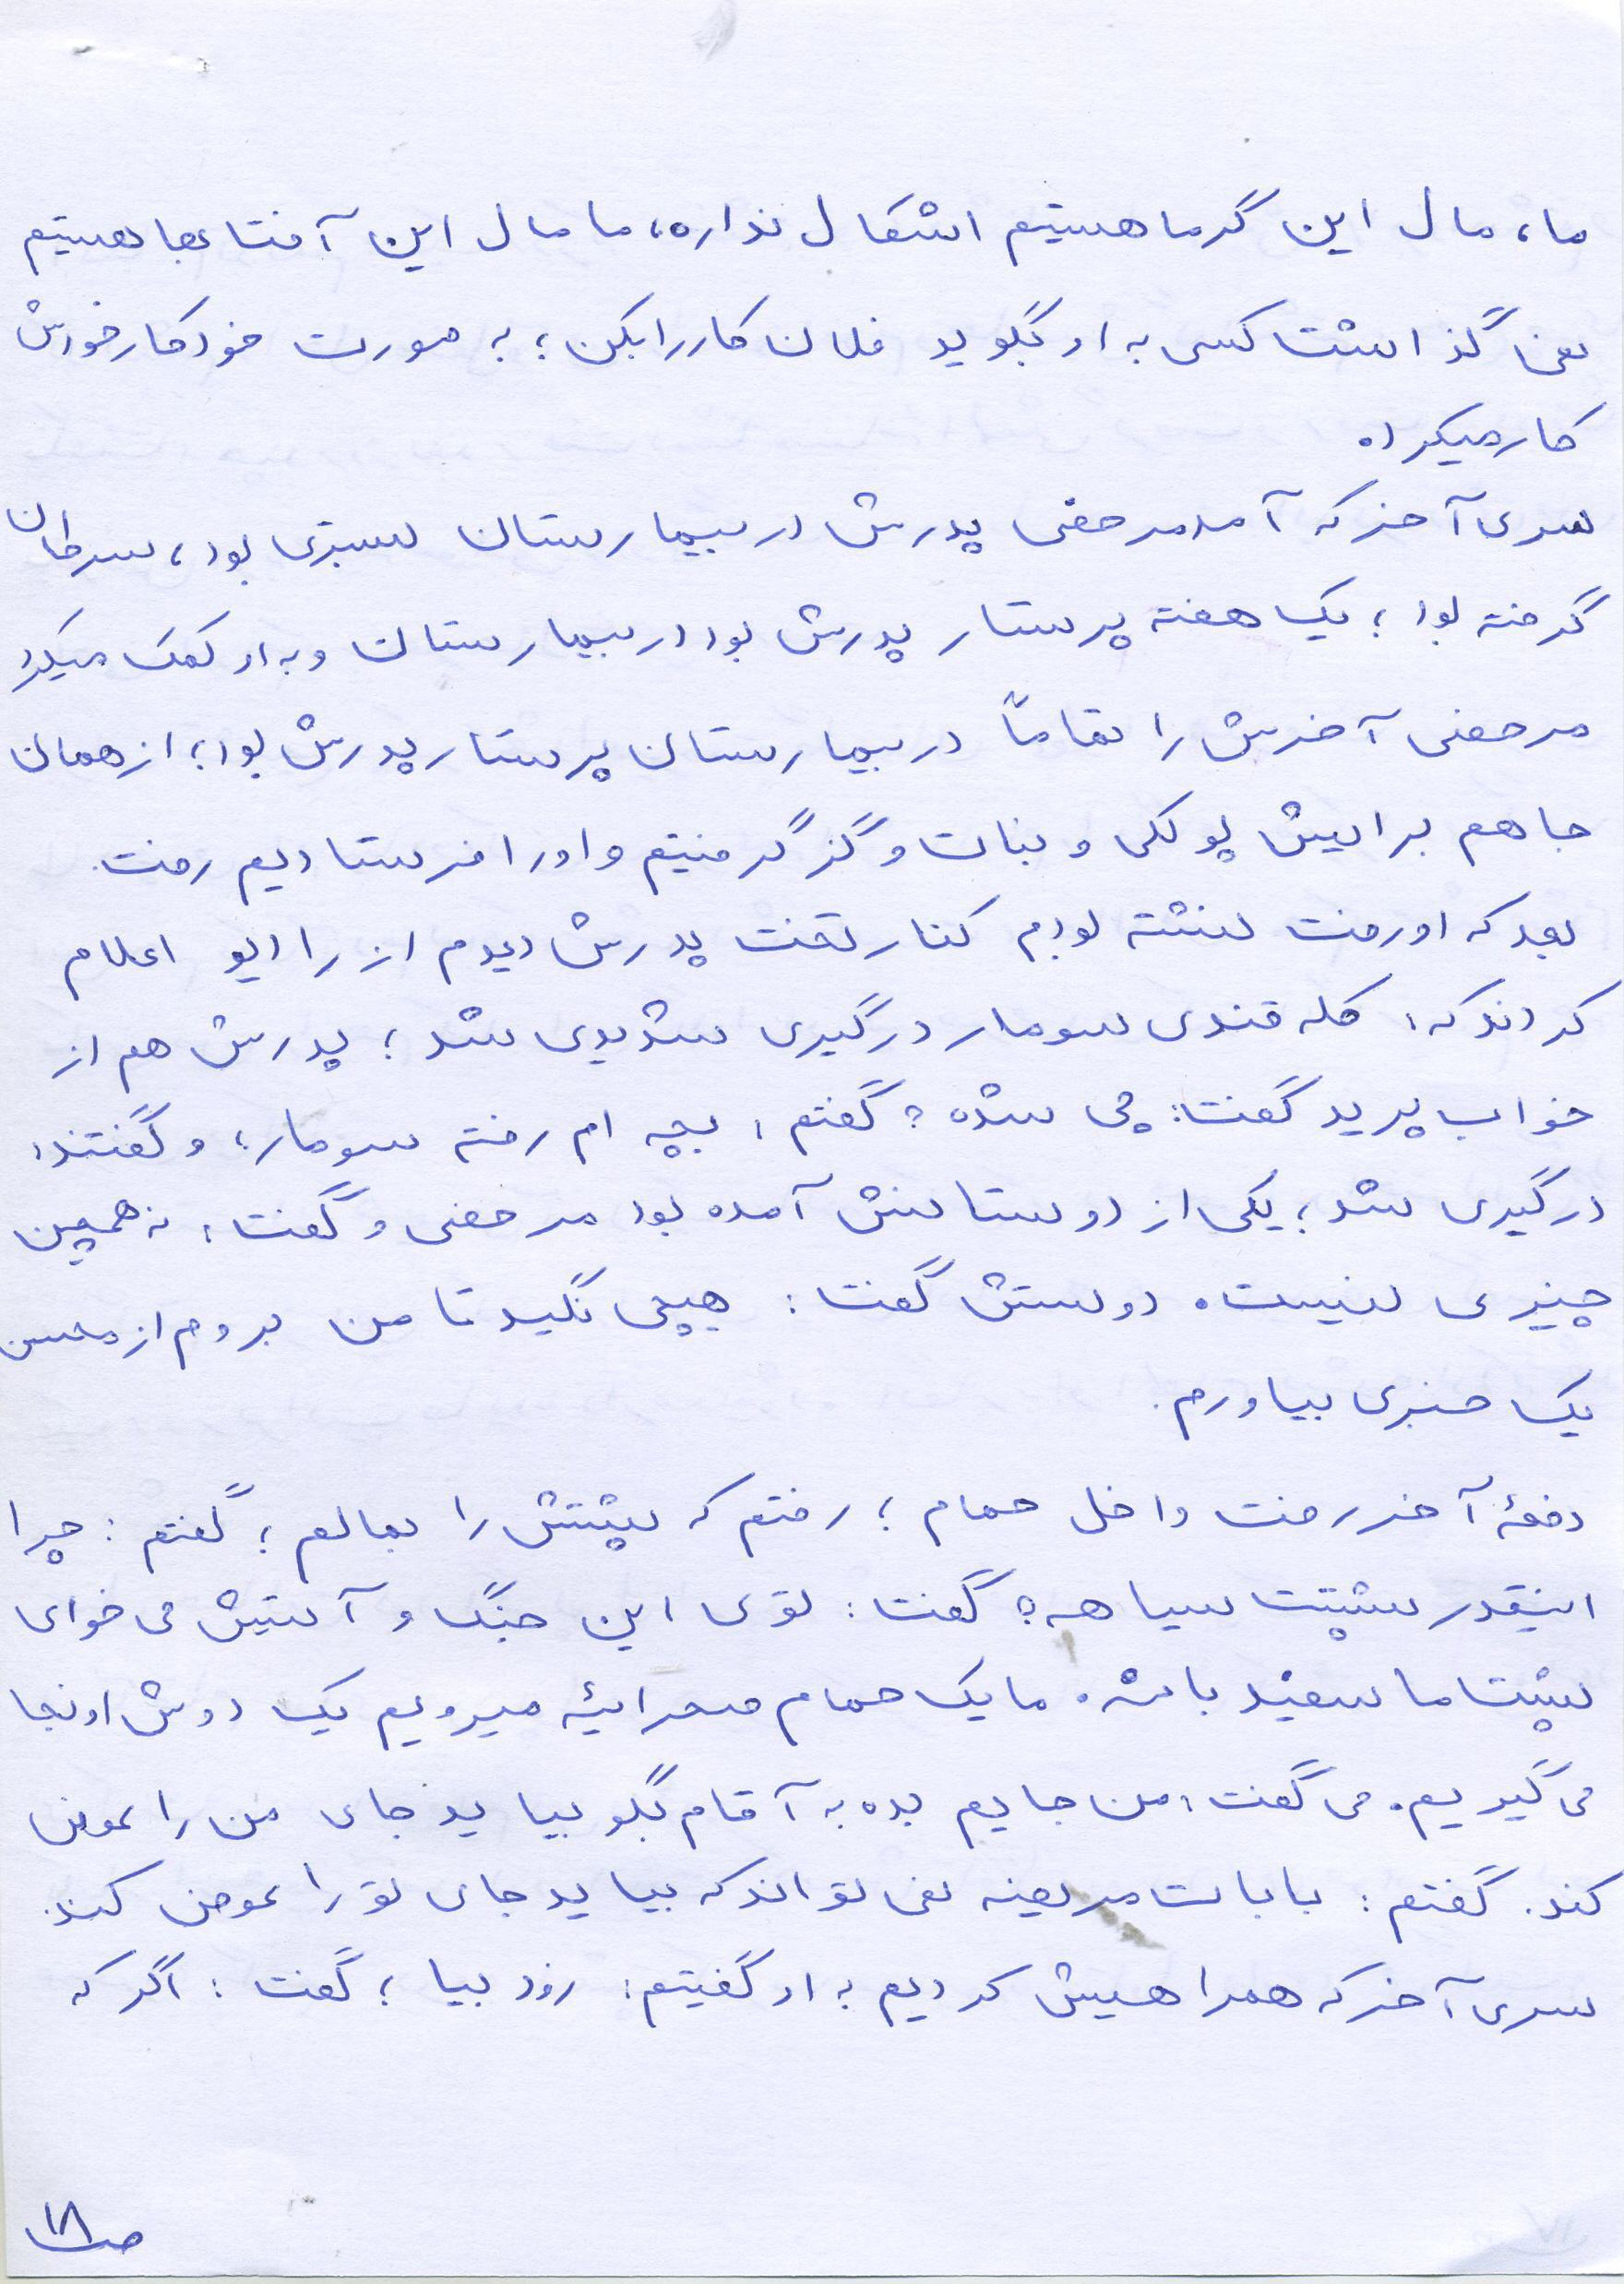 ما، مال این گرما هستیم اشکال نداره، ما مال این آفتابها هستیم
نمی گذاشت کسی به او بگوید فلان کار را بکن؛ به صورت خودکار خودش
کار میکرد.
سری آخر که آمد مرخصی پدرش در بیمارستان بستری بود، سرطان
گرفته بود؛ یک هفته پرستار پدرش بود در بیمارستان و به او کمک میکرد
مرخصی آخرش را تماماً در بیمارستان پرستار پدرش بود؛ از همان
جا هم برایش پولکی و نبات و گز گرفتیم و او را فرستادیم رفت.
بعد که او رفت نشسته بودم کنار تخت پدرش دیدم از رادیو اعلام
کردند که: کله قندی سومار درگیری شدیدی شد؛ پدرش هم از
خواب پرید گفت: چی شده؟ گفتم: بچه ام رفته سومار؛ و گفتند:
درگیری شد؛ یکی از دوستانش آمده بود مرخصی و گفت: نه همچین
چیزی نیست. دوستش گفت: هیچی نگید تا من بروم از محسن
یک خبری بیاورم.
دفعۀ آخر رفت داخل حمام؛ رفتم که پشتش را بمالم؛ گفتم: چرا
اینقدر پشتت سیاهه؟ گفت: توی این جنگ و آتیش می خوای
پشت ما سفید باشه. ما یک حمام صحرائیه میرویم یک دوش اونجا
می گیریم. می گفت: من جایم بده به آقام بگو بیاید جای من را عوض
کند. گفتم: بابات مریضه نمی تواند که بیاید جای تو را عوض کند.
سری آخر که همراهیش کردیم به او گفتیم: زود بیا؛ گفت: اگر که
ص۱۸